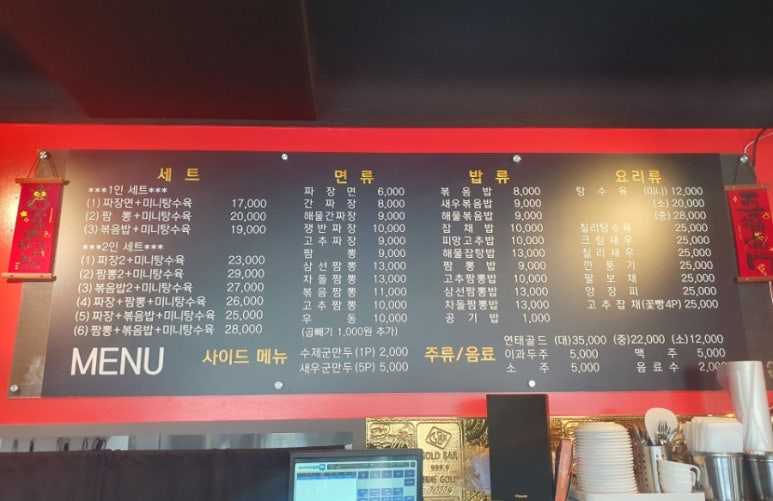 세 트
***1인 세트***
(1) 짜장면+미니탕수육 17,000
(2) 짬 뽕+미니탕수육 20,000
(3) 볶음밥+미니탕수육 19,000
***2인 세트***
(1) 짜장2+미니탕수육 23,000
(2) 짬뽕2+미니탕수육 29,000
(3) 볶음밥2+미니탕수육 27,000
(4) 짜장+짬뽕+미니탕수육 26,000
(5) 짜장+볶음밥+미니탕수육 25,000
(6) 짬뽕+볶음밥+미니탕수육 28,000
면 류
짜 장 면 6,000
간 짜 장 8,000
해물간짜장 9,000
쟁반짜장 10,000
고추짜장 9,000
짬 뽕 9,000
삼선짬뽕 13,000
차돌짬뽕 13,000
볶음짬뽕 11,000
고추짬뽕 10,000
우 동 10,000
(곱빼기 1,000원 추가)
밥 류
볶 음 밥 8,000
새우볶음밥 9,000
해물볶음밥 9,000
잡 채 밥 10,000
피망고추밥 10,000
해물잡탕밥 13,000
짬 뽕 밥 9,000
고추짬뽕밥 10,000
삼선짬뽕밥 13,000
차돌짬뽕밥 13,000
공 기 밥 1,000
요리류
탕 수 육 (미니) 12,000
(소) 20,000
(중) 28,000
칠리탕수육 25,000
크림새우 25,000
칠리새우 25,000
깐 풍 기 25,000
팔 보 채 25,000
양 장 피 25,000
고추잡채(꽃빵4P) 25,000
MENU
사이드 메뉴
수제군만두(1P) 2,000
새우군만두(5P) 5,000
주류/음료
연태골드 (대)35,000 (중)22,000 (소)12,000
이과두주 5,000 맥 주 5,000
소 주 5,000 음료수 2,000
GOLD BAR
999.9
FINE GOLD